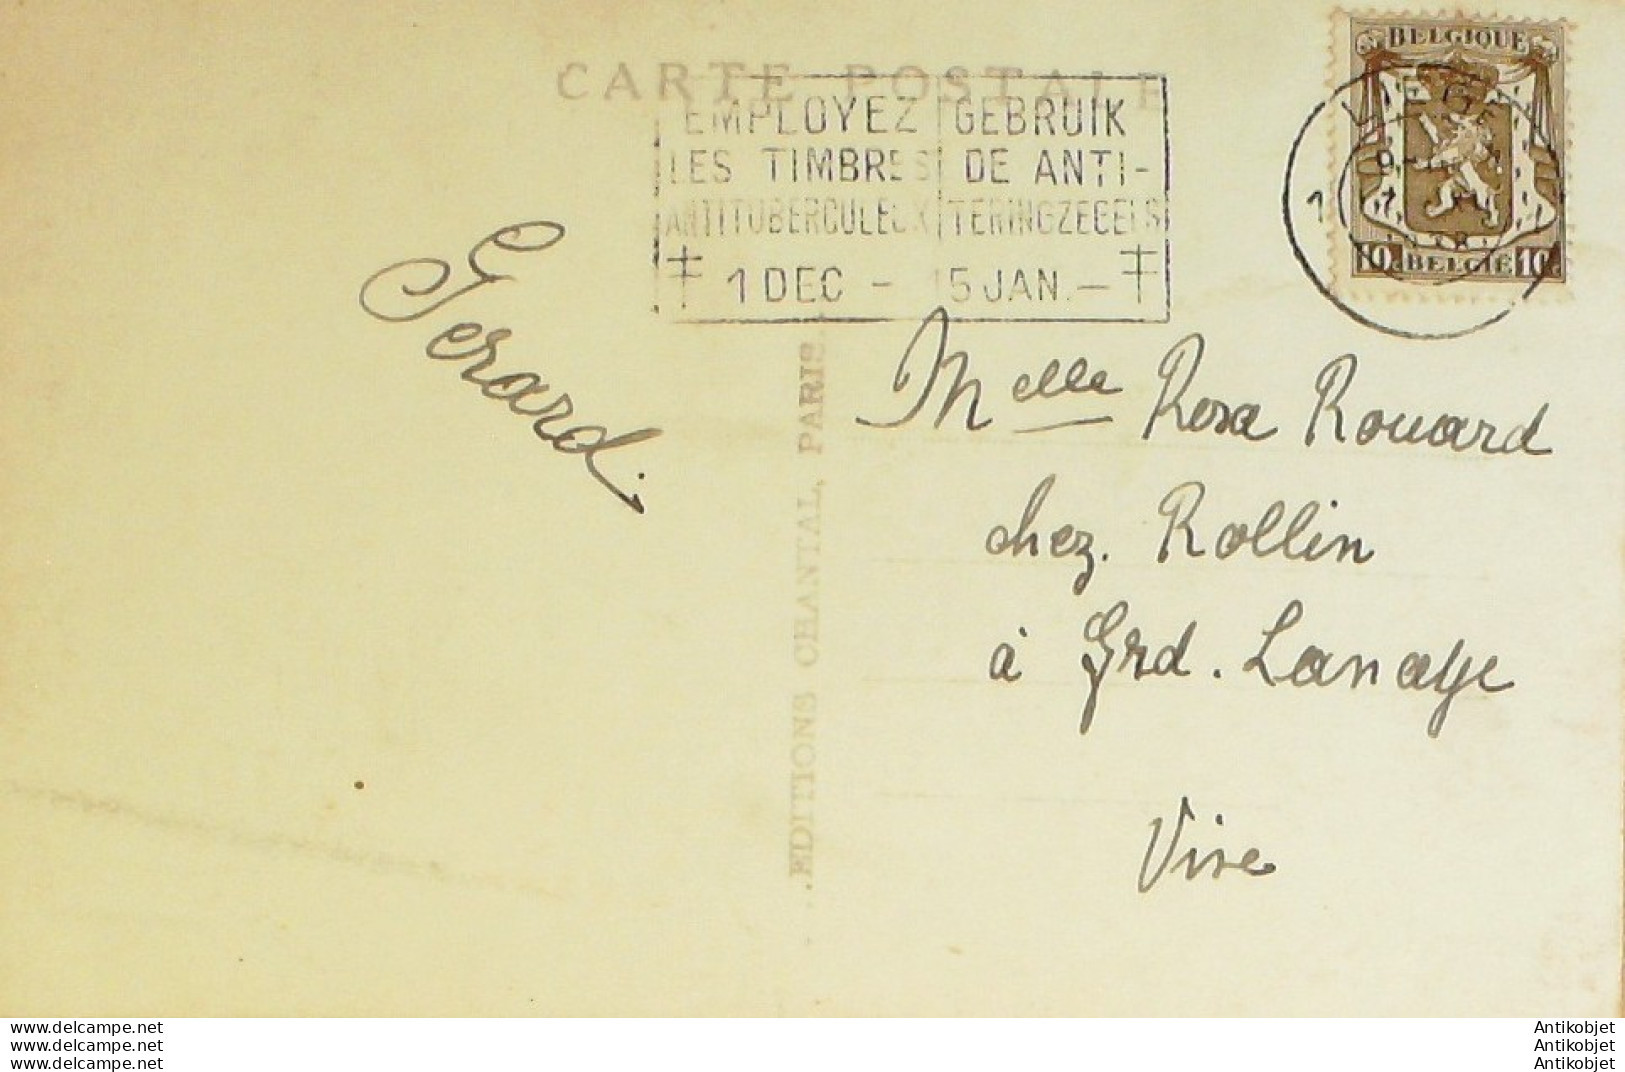 CARTE POSTALE
EMPLOYEZ
LES TIMBRES
ANTITUBERCULEUX
GEBRUIK
DE ANTI-
TERINGZEGELS
1 DEC - 15 JAN. -
BELGIQUE
10 BELGIË 10
Gerard.
Melle Rosa Rouard
chez. Rollin
à Grd. Lanaye
Vise
.EDITIONS CHANTAL, PARIS.
www.delcampe.net
www.delcampe.net
www.delcampe.net
Antikobjet
Antikobjet
Antikobjet